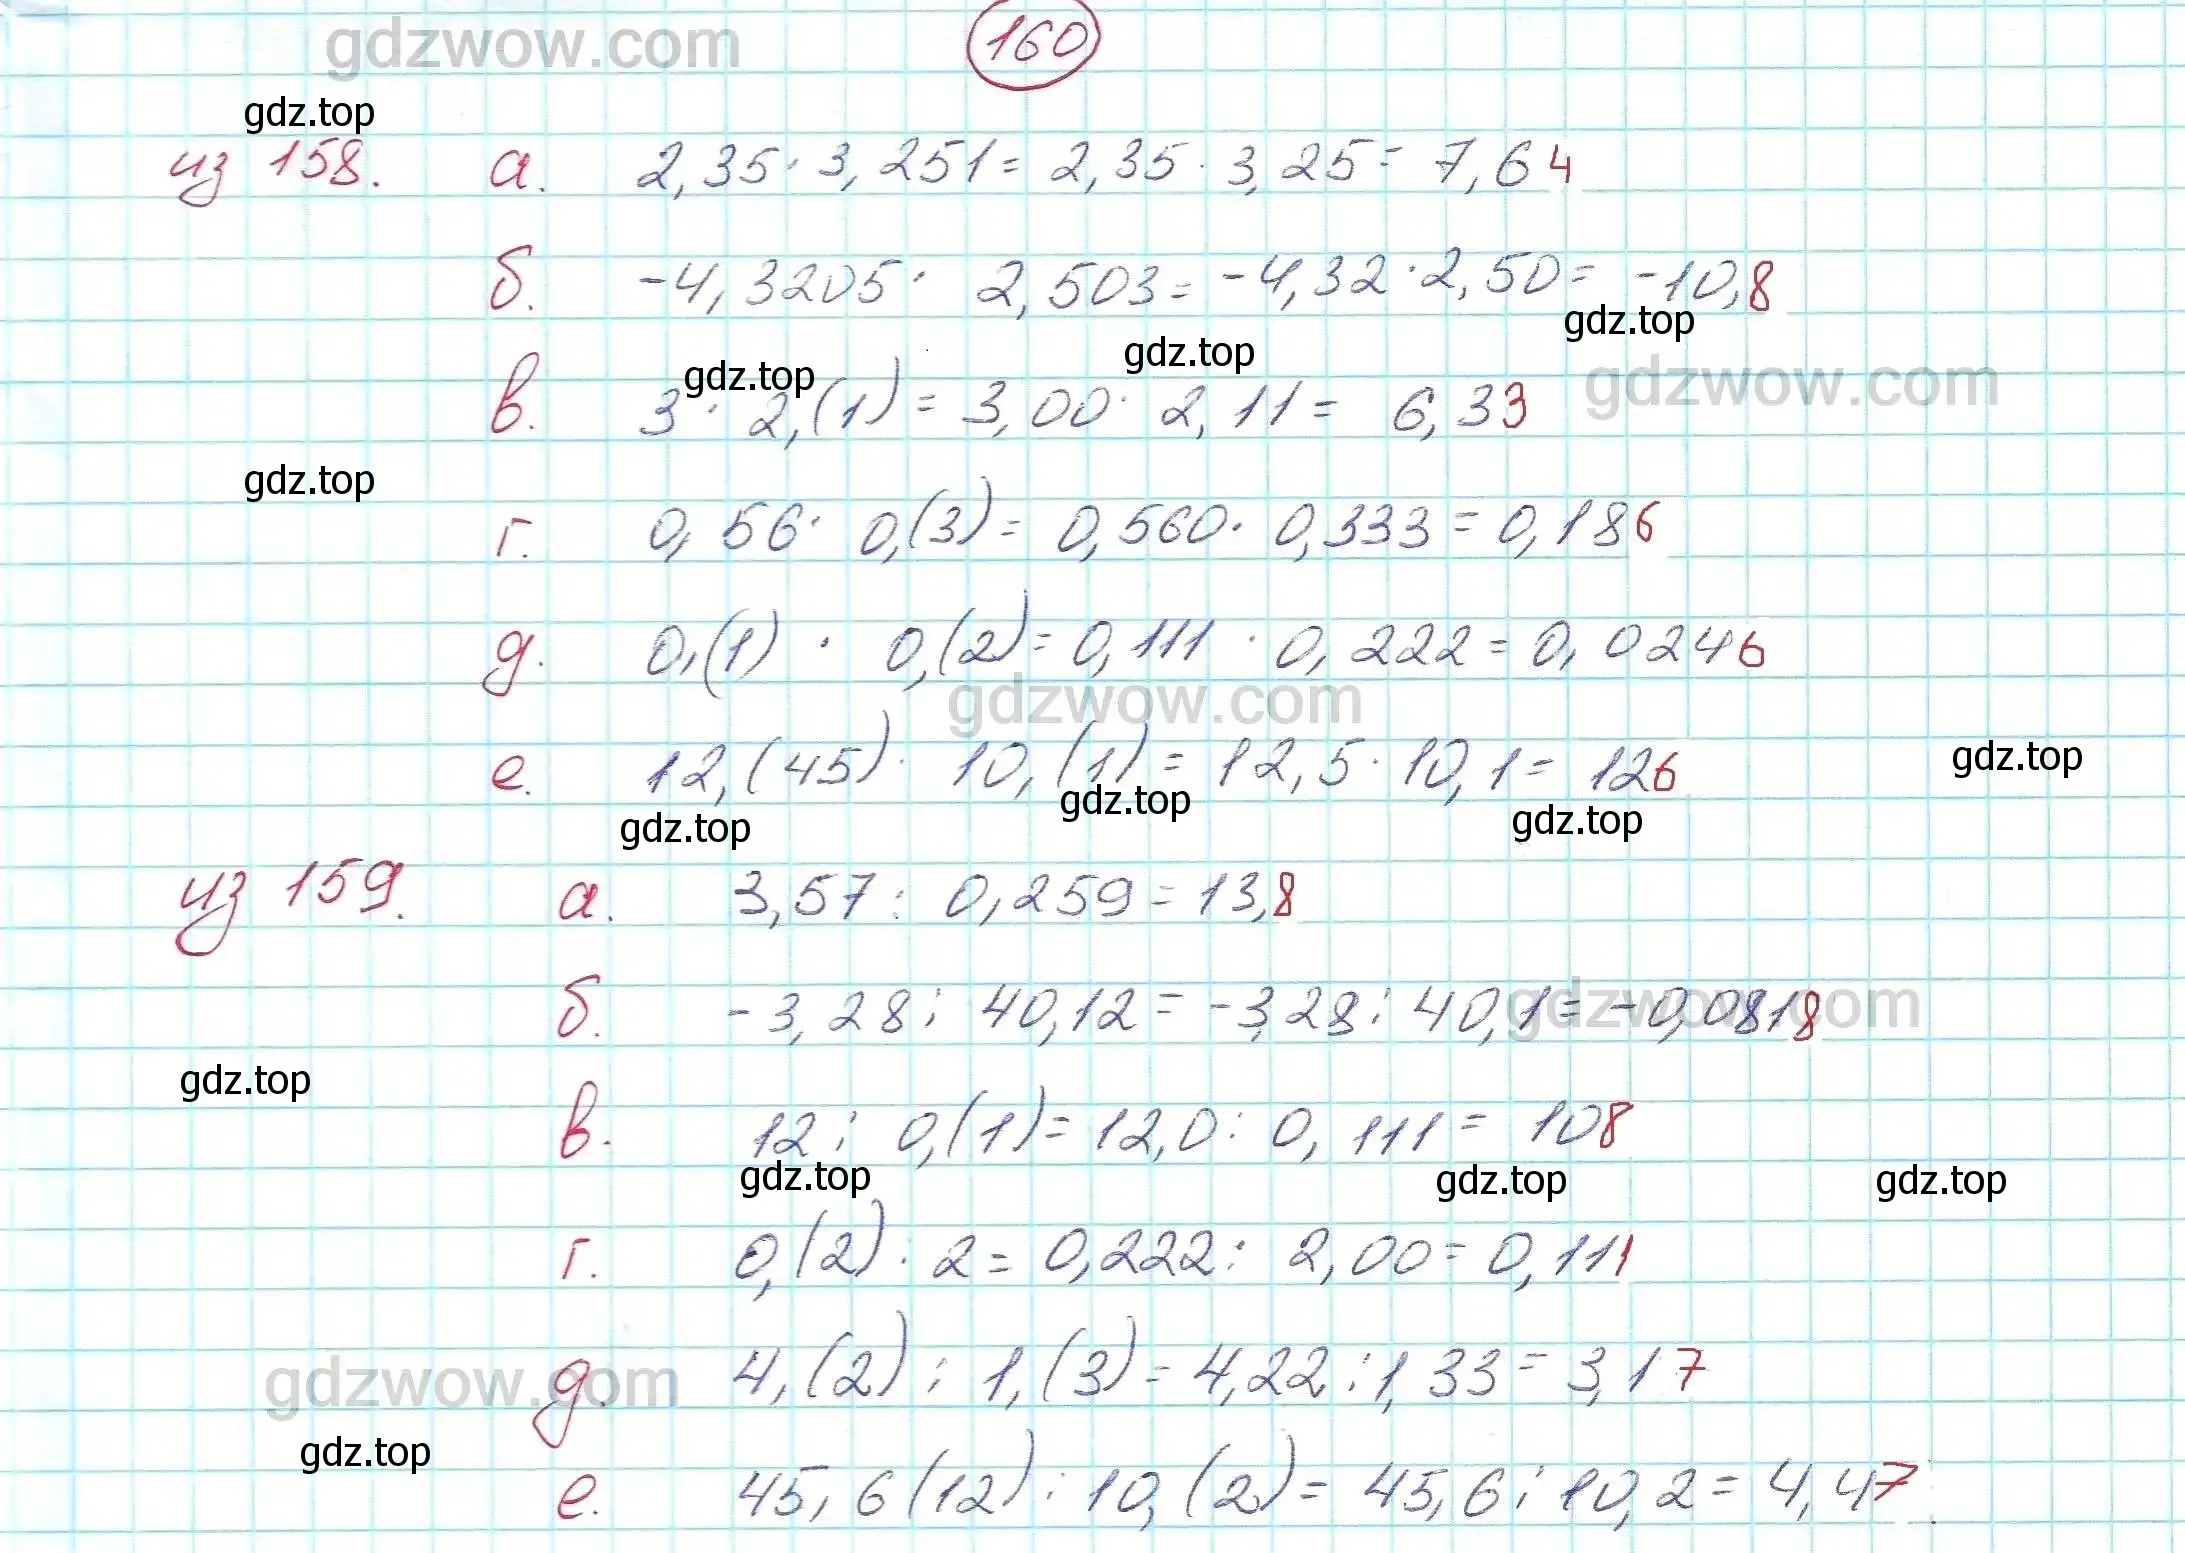 gdzwow.com
160
gdz.top
из 158. а. 2,35 · 3,251 = 2,35 · 3,25 = 7,64
б. -4,3205 · 2,503 = -4,32 · 2,50 = -10,8
gdz.top
gdz.top
gdz.top
gdzwow.com
в. 3 · 2,(1) = 3,00 · 2,11 = 6,33
gdz.top
г. 0,56 · 0,(3) = 0,560 · 0,333 = 0,186
д. 0,(1) · 0,(2) = 0,111 · 0,222 = 0,0246
gdzwow.com
е. 12,(45) · 10,(1) = 12,5 · 10,1 = 126
gdz.top
gdz.top
gdz.top
gdz.top
из 159. а. 3,57 : 0,259 = 13,8
б. -3,28 : 40,12 = -3,28 : 40,1 = -0,0818
gdzwow.com
gdz.top
в. 12 : 0,(1) = 12,0 : 0,111 = 108
gdz.top
gdz.top
gdz.top
г. 0,(2) · 2 = 0,222 : 2,00 = 0,111
д. 4,(2) : 1,(3) = 4,22 : 1,33 = 3,17
gdzwow.com
gdz.top
е. 45,6(12) : 10,(2) = 45,6 : 10,2 = 4,47